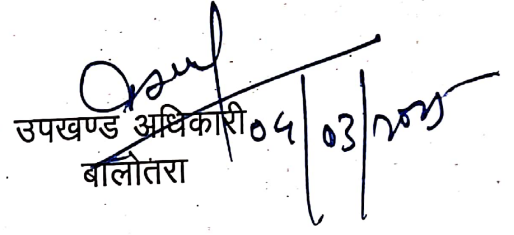 उपखण्ड अधिकारी 04/03/2025
बालोतरा